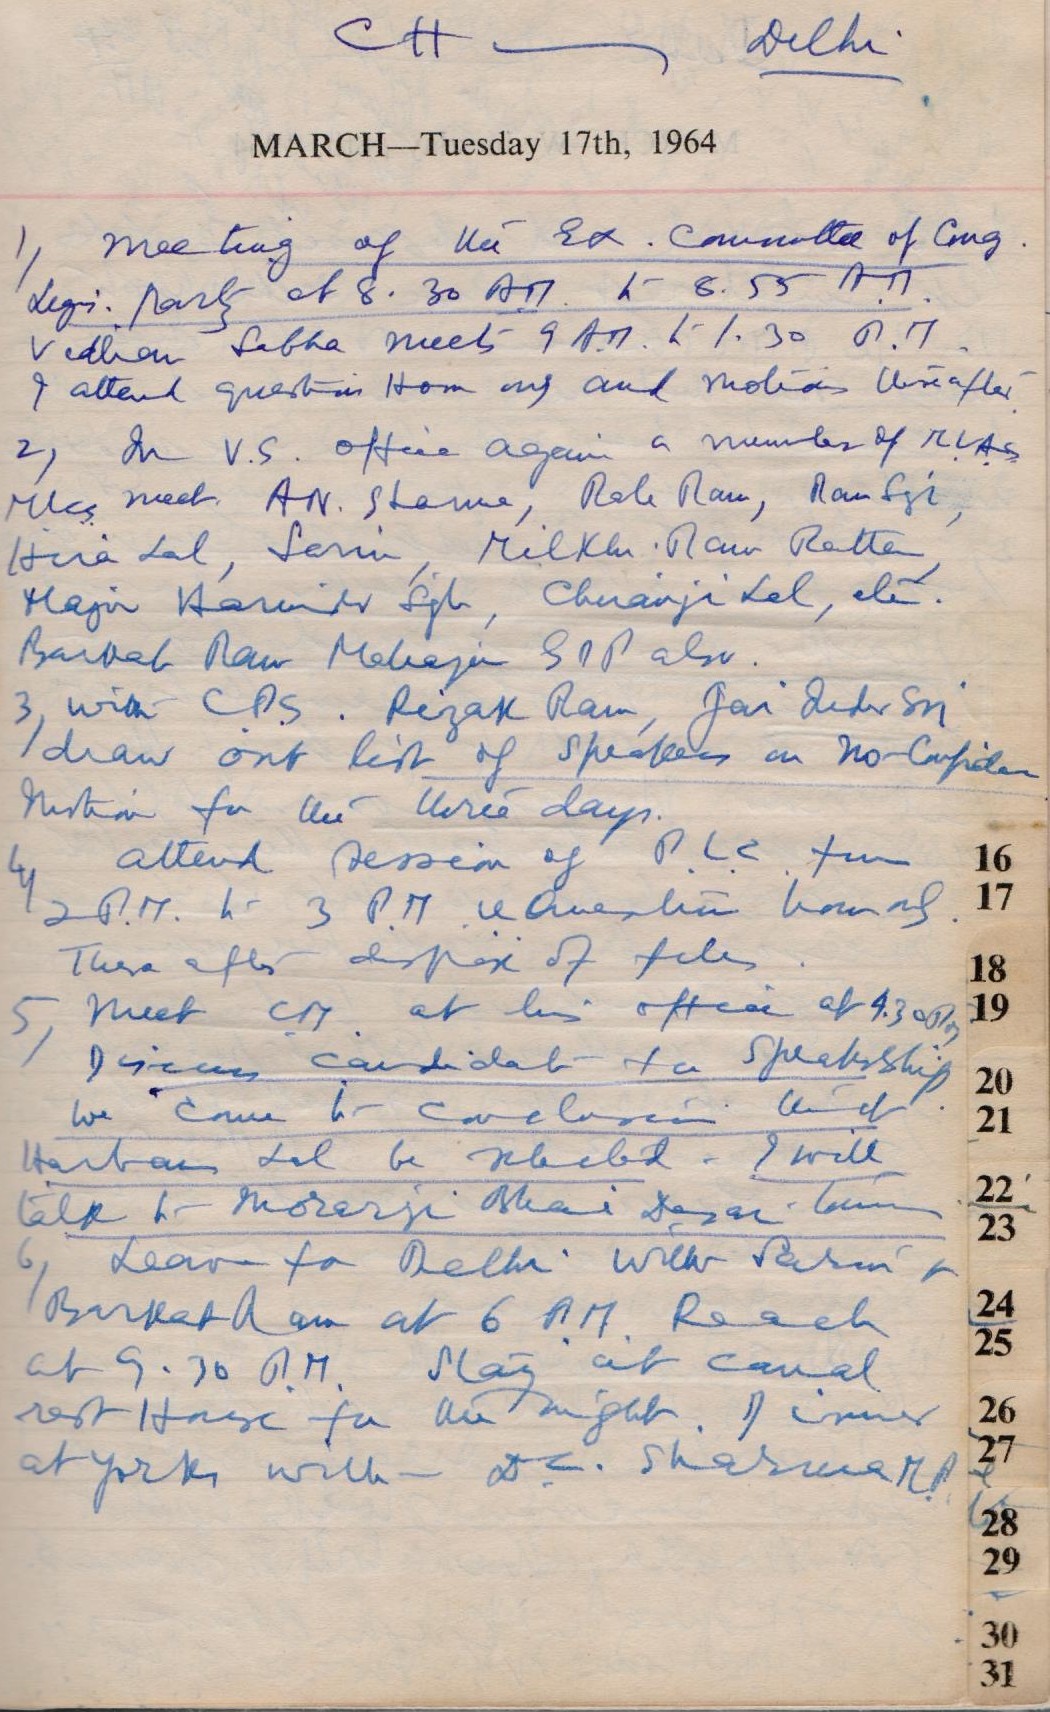 CH — Delhi
MARCH—Tuesday 17th, 1964
1, Meeting of the Ex. Committee of Cong.
Legi. Party at 8.30 A.M. to 8.55 A.M.
Vidhan Sabha meets 9 A.M. to 1.30 P.M.
I attend question Hour and motions thereafter
2, In V.S. office again a number of M.L.As
MLCs meet. A.N. Sharma, Rala Ram, Ram Sgh,
Hira Lal, Sarin, Milkhi Ram Rattan
Major Harinder Sgh, Chiranji Lal, etc.
Barkat Ram Mahajan GPP also.
3, with C.P.S. Rizak Ram, Jai Inder Sgh
draw out list of speakers on No-Confiden
Motion for the three days.
4, attend session of P.L.C from
2 P.M. to 3 P.M ie Question hour
There after dispose of files.
5, Meet CM. at his office at 4.30 PM
Discuss candidate for Speakership
We come to conclusion that
Harbans Lal be selected - I will
talk to Morarji Bhai Desai
6, Leave for Delhi with Sarin &
Barkat Ram at 6 P.M. Reach
at 9.30 P.M. Stay at Canal
rest House for the night. Dinner
at Yorks with D.C. Sharma M.P. &
16
17
18
19
20
21
22
23
24
25
26
27
28
29
30
31